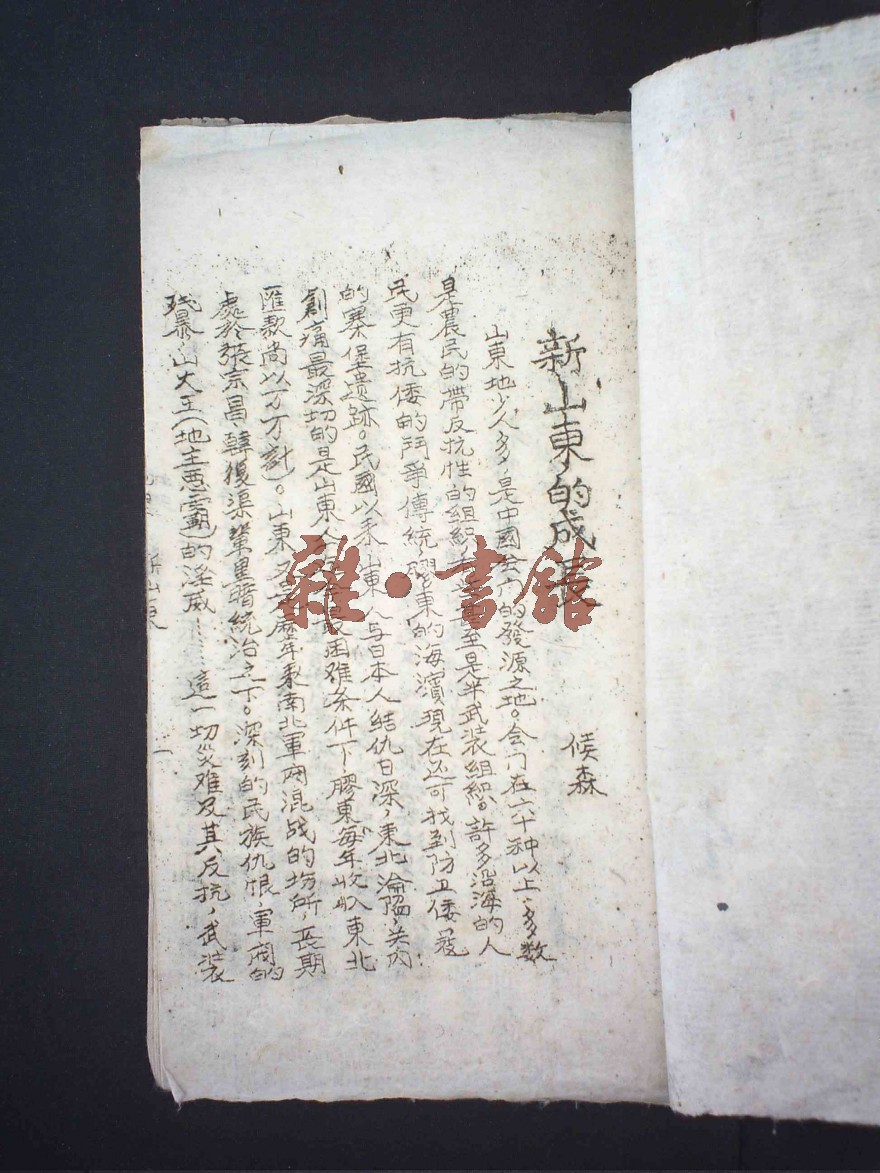 新山東的成長
候森
山東地少人多，是中國会门的發源之地。会门在六十种以上，多数
是農民的帶反抗性的組織 甚至是半武装組織。許多沿海的人
民更有抗倭的鬥爭傳統，膠東的海濱現在还可找到防卫倭寇
的寨堡遗跡。民國以来山東人与日本人結仇日深，東北淪陷，关内
創痛最深切的是山東人 困难条件下膠東每年收收東北
匯款尚以万万計）。山東 歷年来南北軍閥混战的場所，長期
處於張宗昌、韓復渠輩黑暗統治之下。深刻的民族仇恨，軍閥的
残暴，山大王（地主惡霸）的淫威……這一切災难及其反抗，武装
新山東
一
雜·書館